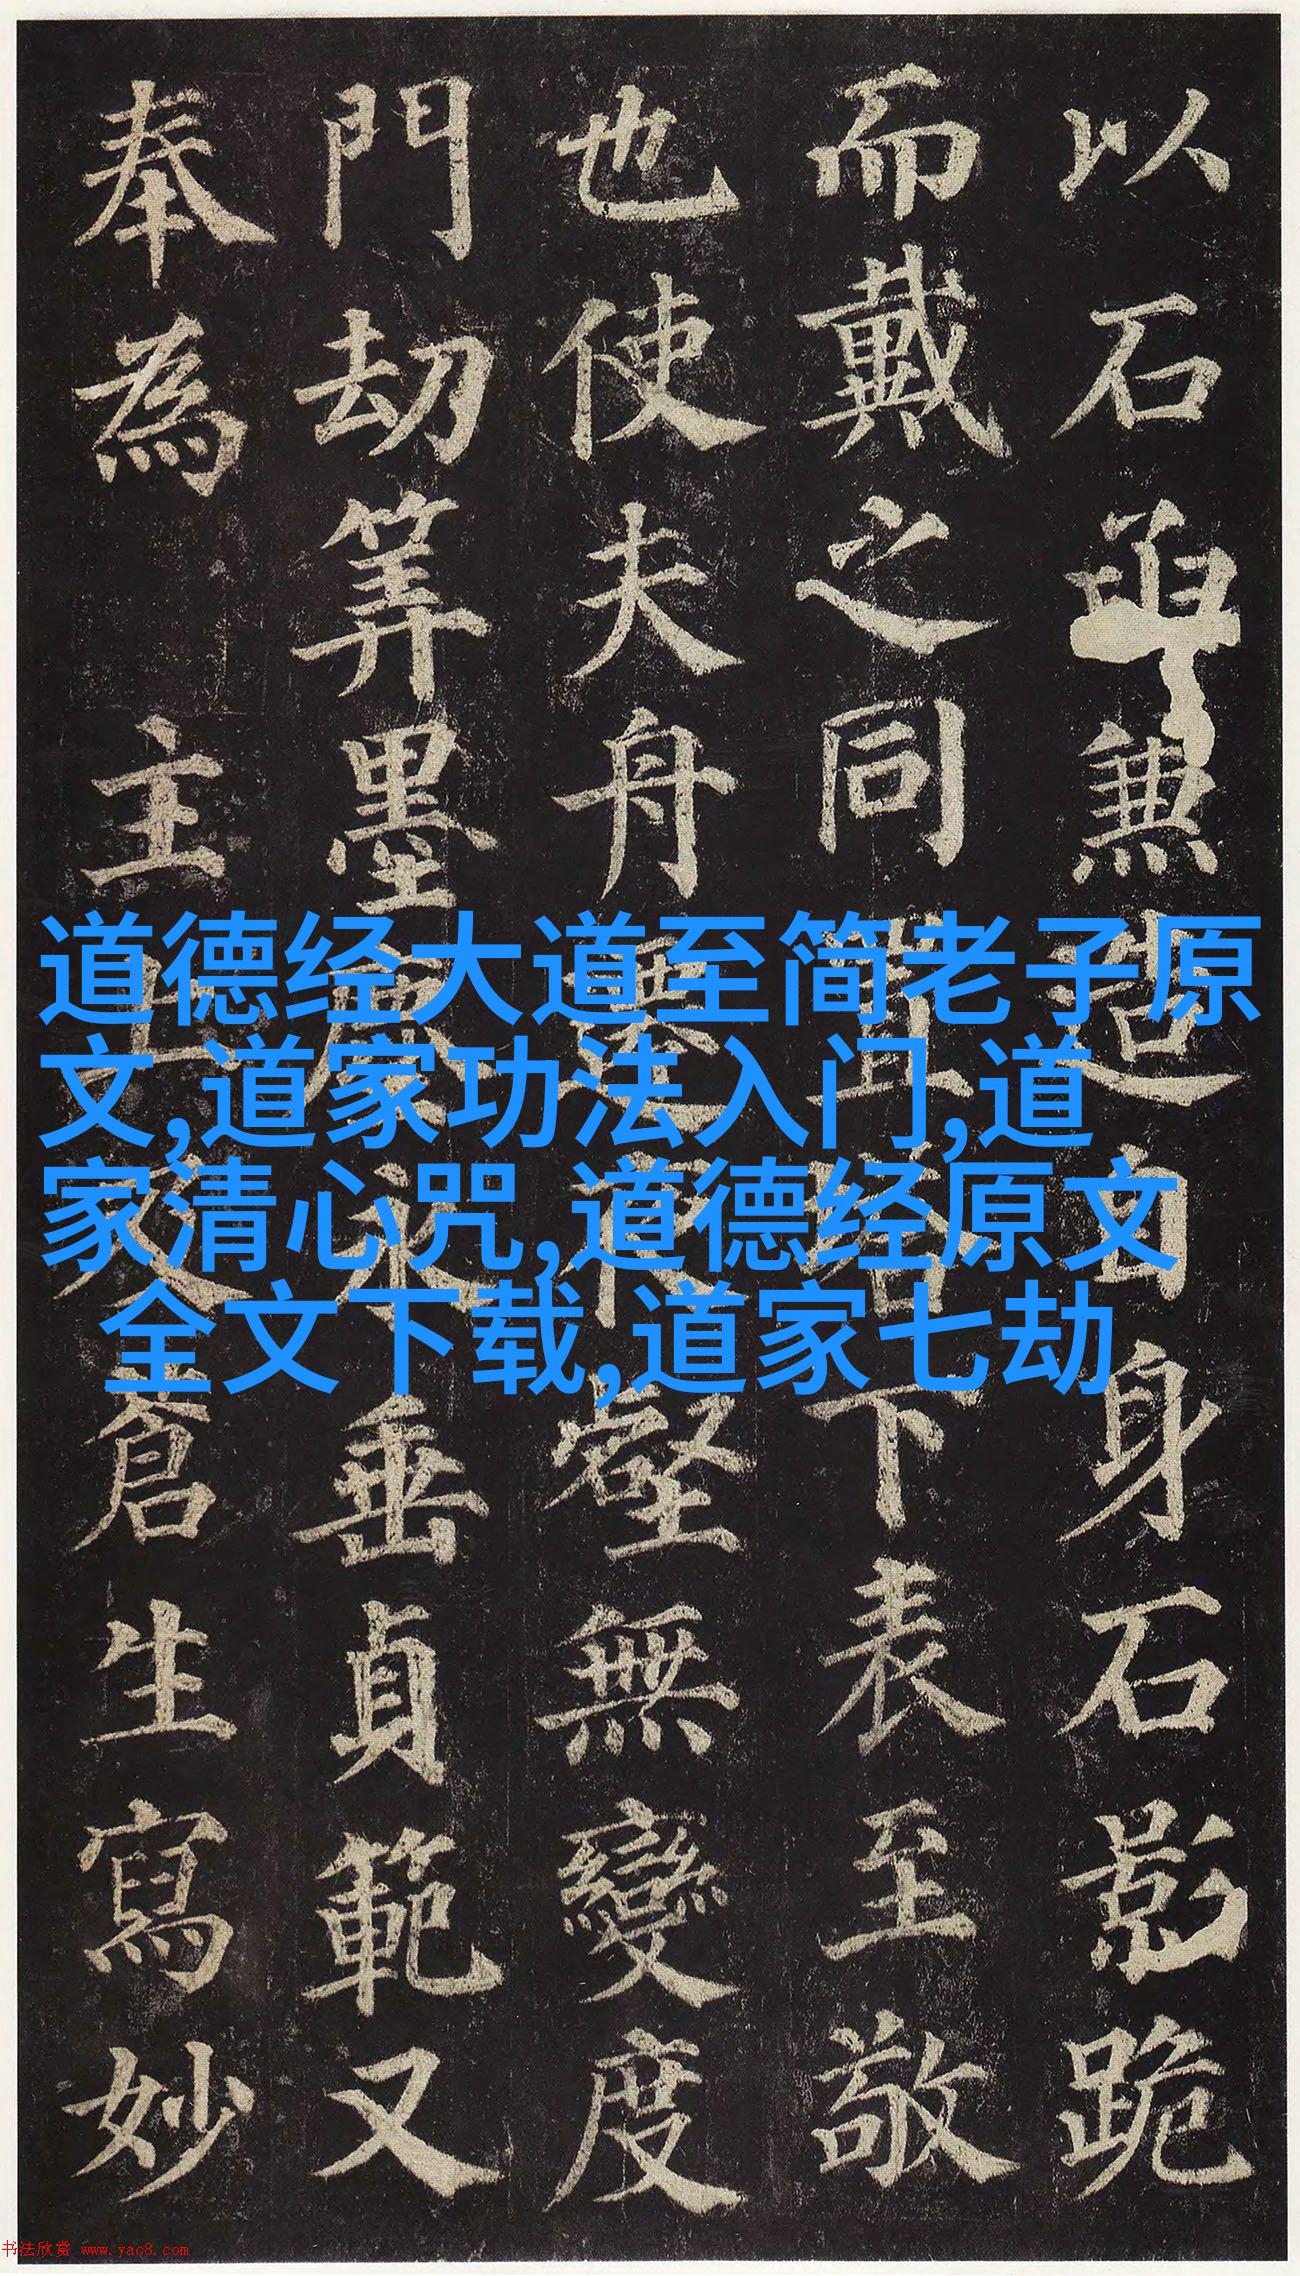 以石函兼造自身石影跪
而戴之同置塔下表至敬
也使夫舟遷夜壑無變度
門劫筭墨塵永垂貞範又
奉為 主上及蒼生寫妙
道德经大道至简老子原
文,道家功法入门,道
家清心咒,道德经原文
全文下载,道家七劫
书法欣赏 www.yac8.com